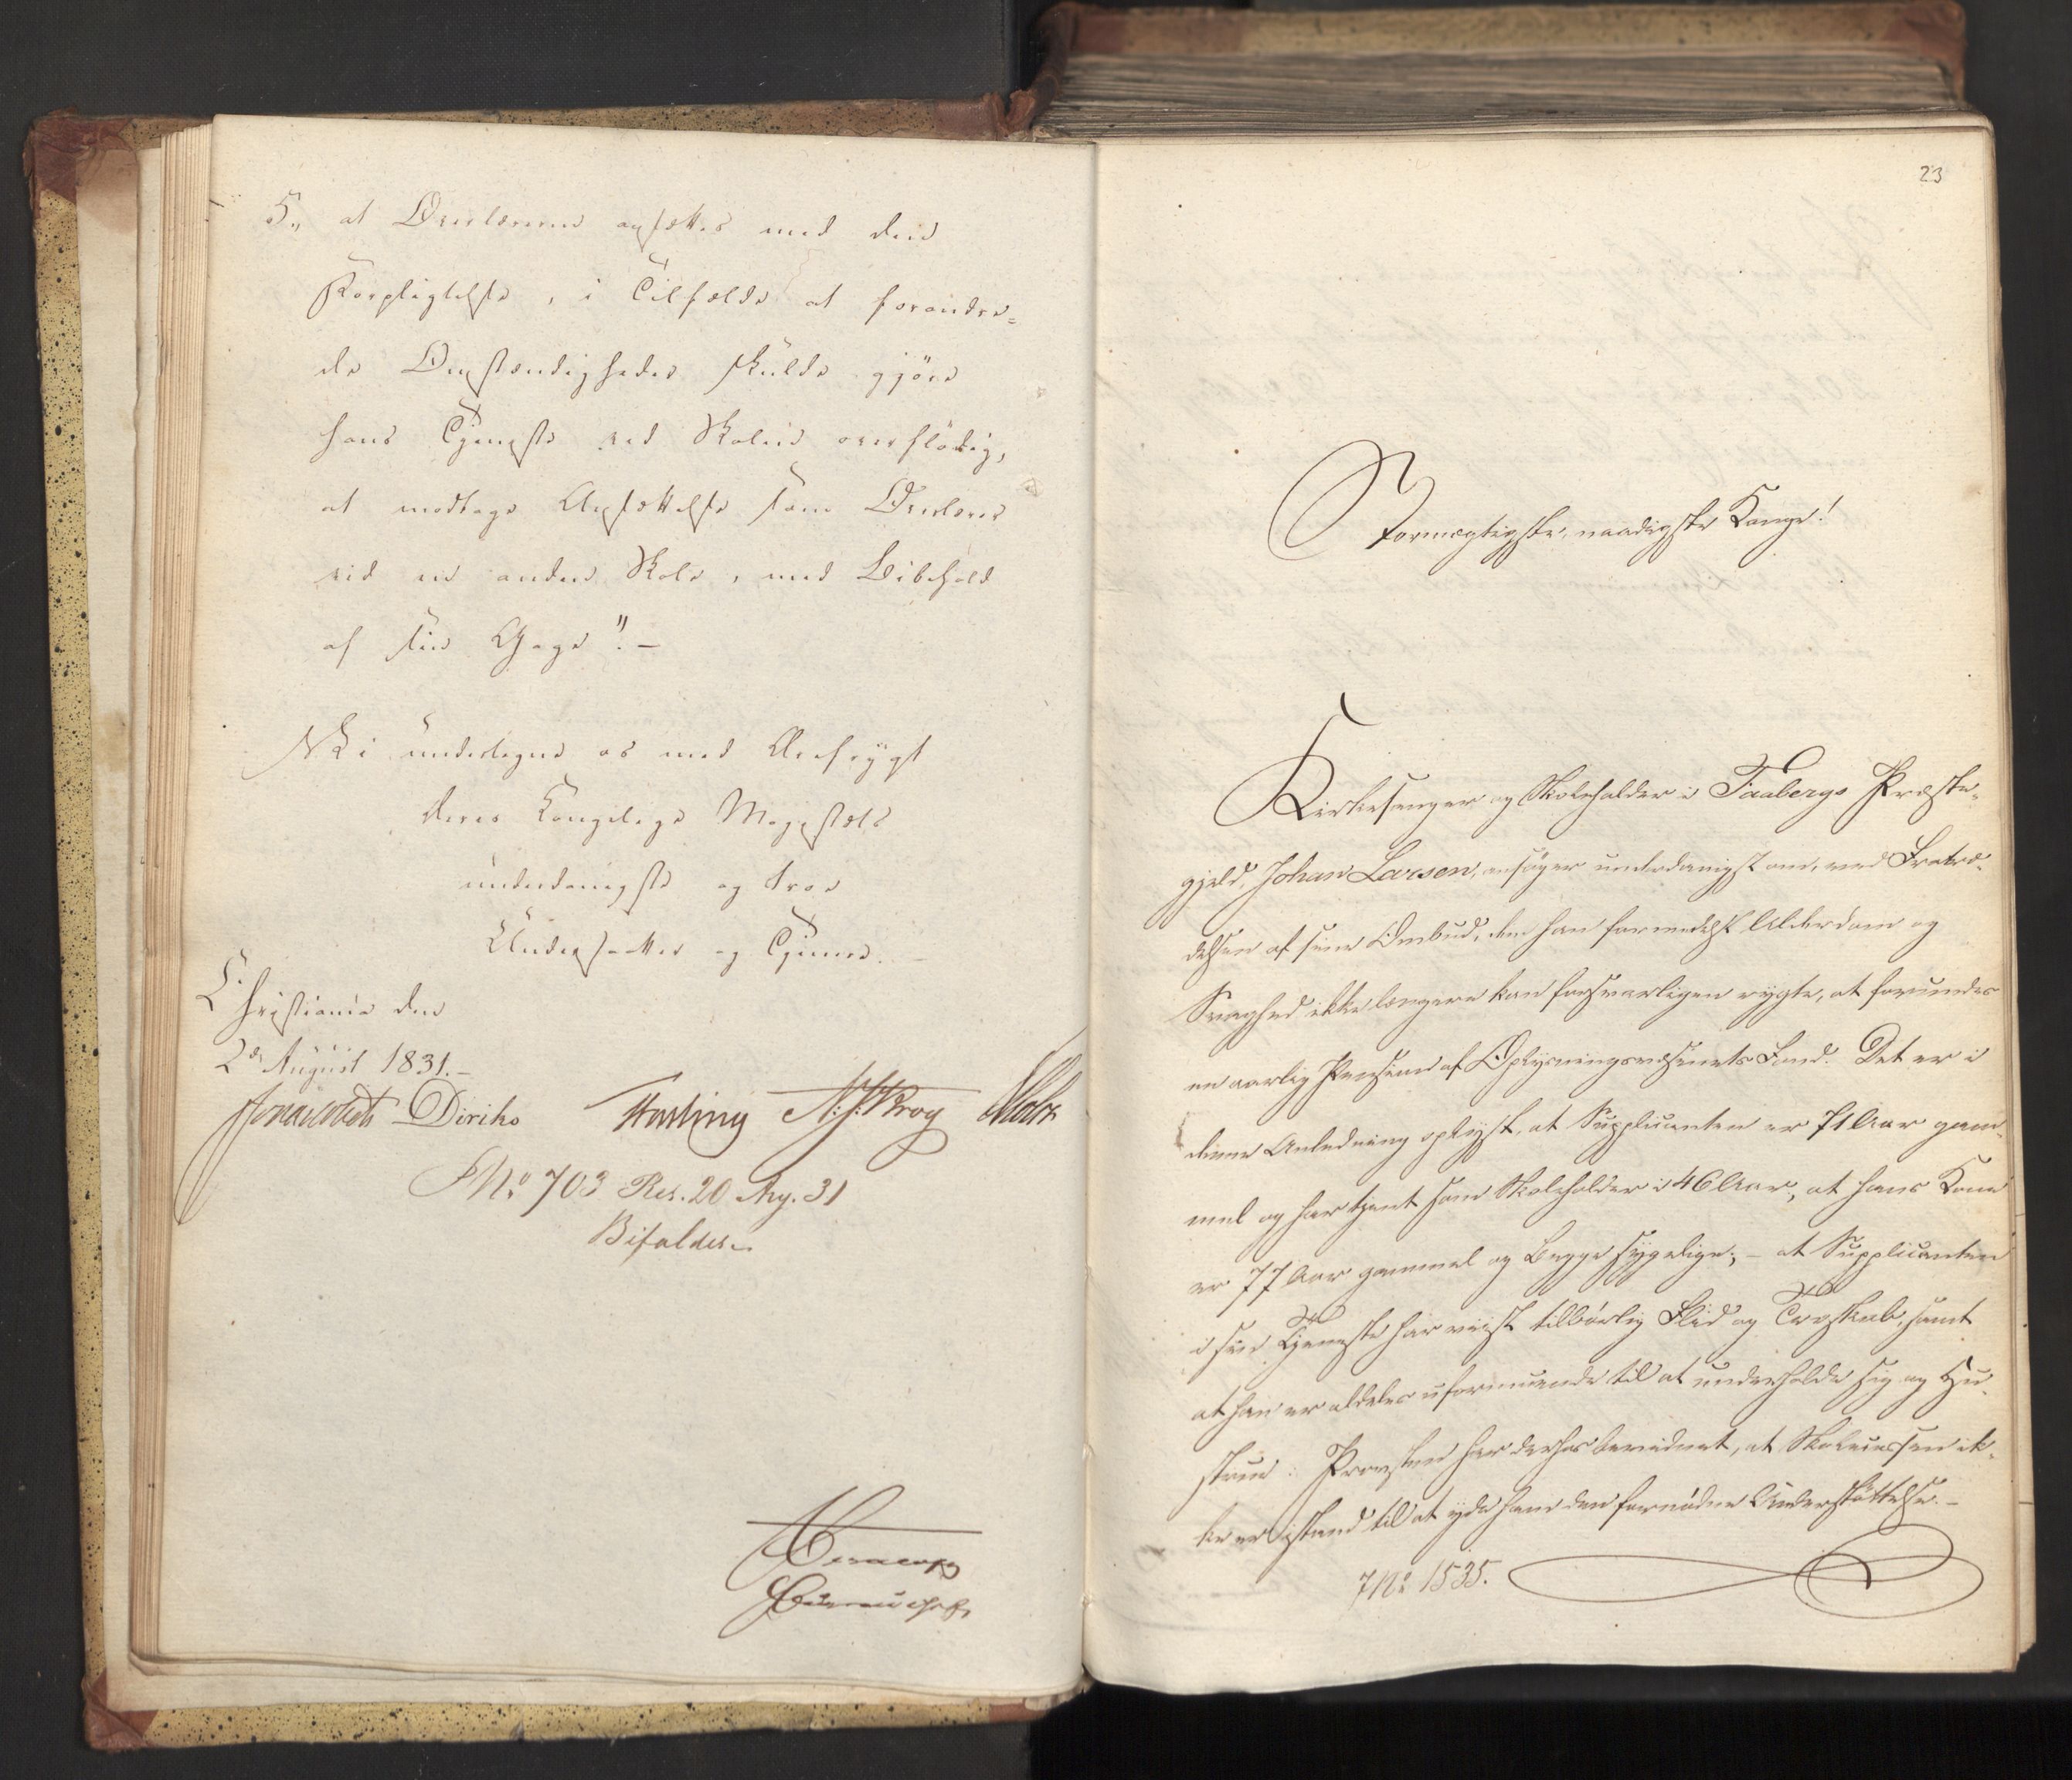 5,, at Overlæreren ansættes med den
Forpligtelse, i Tilfælde at forandre-
de Omstændigheder skulde gjöre
hans Tjeneste ved Skolen overflödig,
at modtage Ansættelse som Overlærer
ved en anden Skole, med Bibehold
af sin Gage". –
Vi undertegne os med Ærefrygt
Deres Kongelige Majestæts
underdanigste og troe
Undersaatter og Tjenere. –
Christiania den
2den August 1831. –
Diriks N. J. Krog
No 703 Res. 20 Aug. 31
Bifaldes. –
23
Stormægtigste, naadigste Konge!
Kirkesanger og Skoleholder i Faabergs Præste-
gjeld, Johan Larsen, ansøger underdanigst om, ved Fratræ-
delsen af sine Ombud, dem han formedelst Alderdom og
Svaghed ikke længere kan forsvarligen rygte, at forundes
en aarlig Pension af Oplysningsvæsenets Fond. Det er i
denne Anledning oplyst, at Supplicanten er 71 Aar gam-
mel og har tjent som Skoleholder i 46 Aar, at hans Kone
er 77 Aar gammel og Begge sygelige; – at Supplicanten
i sin Tjeneste har viist tilbørlig Flid og Troskab, samt
at han er aldeles uformuende til at underholde sig og Hu-
strue. Provsten har derhos bevidnet, at Skolecassen ik-
ke er istand til at yde ham den fornødne Understøttelse. –
No 1535.